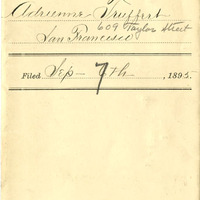 Adrienne Truffert
609 Taylor Street
San Francisco
Filed Sep 7th, 1895.